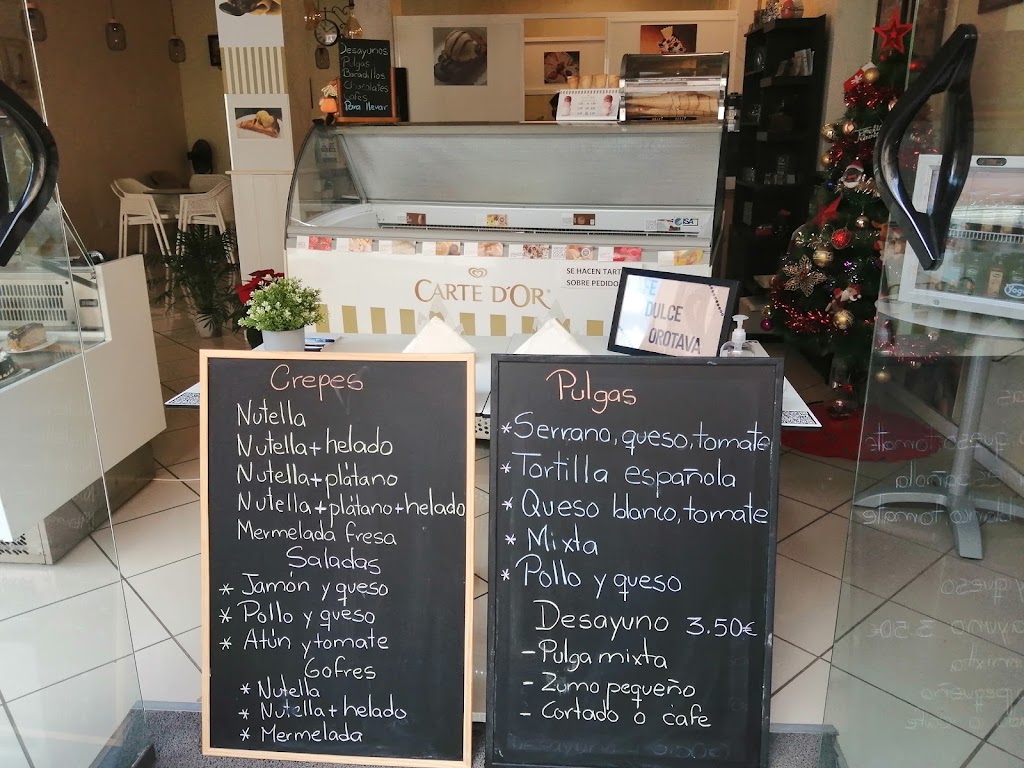 Desayunos
Pulgas
Bocadillos
Chocolates
Cafés
Para llevar
ISA
CARTE D'OR
SE HACEN TART
SOBRE PEDIDO
FE
DULCE
OROTAVA
Crepes
Nutella
Nutella+helado
Nutella+plátano
Nutella+plátano+helado
Mermelada fresa
Saladas
* Jamón y queso
* Pollo y queso
* Atún y tomate
Gofres
* Nutella
* Nutella+helado
* Mermelada
Pulgas
* Serrano, queso, tomate
* Tortilla española
* Queso blanco, tomate
* Mixta
* Pollo y queso
Desayuno 3.50€
- Pulga mixta
- Zumo pequeño
- Cortado o cafe